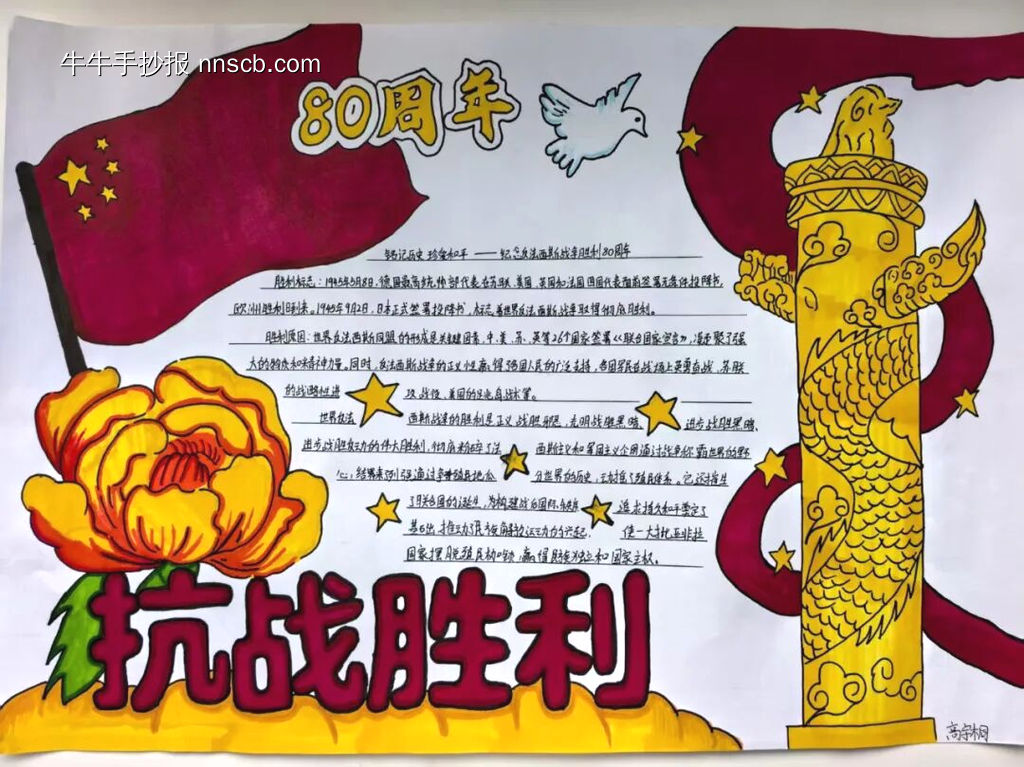 牛牛手抄报 nnscb.com
80周年
铭记历史 珍爱和平 —— 纪念反法西斯战争胜利80周年
胜利标志：1945年5月8日，德国最高统帅部代表在苏联、美国、英国和法国四国代表面前签署无条件投降书，
欧洲胜利日到来。1945年9月2日，日本正式签署投降书，标志着世界反法西斯战争取得彻底胜利。
胜利原因：世界反法西斯同盟的形成是关键因素，中、美、苏、英等26个国家签署《联合国家宣言》，凝聚了强
大的物质和精神力量。同时，反法西斯战争的正义性赢得各国人民的广泛支持，各国军民在战场上英勇奋战，苏联
的战略性进 攻战役、美国的
世界反法 西斯战争的胜利是正义战胜邪恶、光明战胜黑暗、 进步战胜黑暗、
进步战胜反动的伟大胜利，彻底粉碎了法 西斯主义和军国主义企图通过战争称霸世界的野
心，结果列强通过争 世界的历史，动摇了殖民体系。它还催生
了联合国的诞生，为构建战后国际秩序 追求持久和平奠定了
基石出，推动了民族解放运动的兴起， 使一大批亚非拉
国家摆脱殖民 ，赢得民族独立和国家主权。
抗战胜利
高宇桐